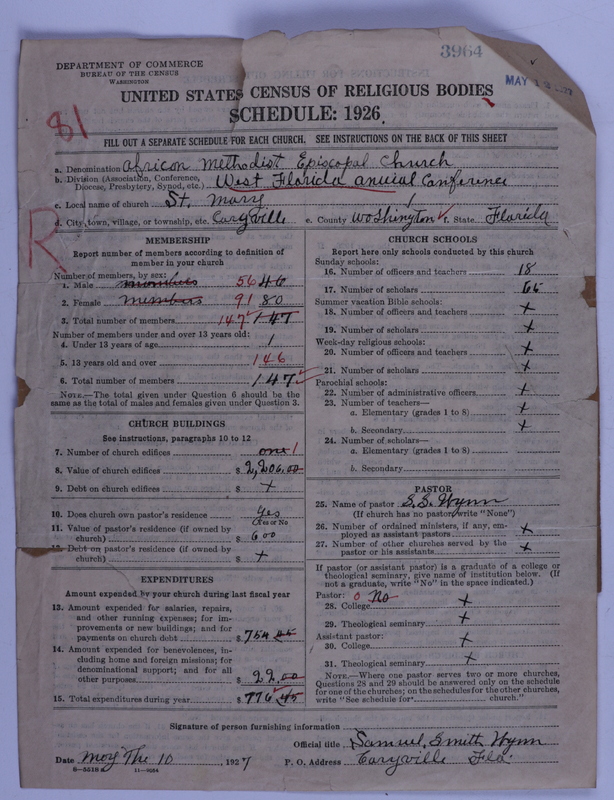 3964
DEPARTMENT OF COMMERCE
BUREAU OF THE CENSUS
WASHINGTON
MAY 12
UNITED STATES CENSUS OF RELIGIOUS BODIES
SCHEDULE: 1926
81
FILL OUT A SEPARATE SCHEDULE FOR EACH CHURCH. SEE INSTRUCTIONS ON THE BACK OF THIS SHEET
a. Denomination African Methodist Episcopal Church
b. Division (Association, Conference, Diocese, Presbytery, Synod, etc.) West Florida anuial Conference
c. Local name of church St. Mary
d. City, town, village, or township, etc. Caryville e. County Washington f. State Florida
R
MEMBERSHIP
Report number of members according to definition of member in your church
Number of members, by sex:
1. Male members 56 46
2. Female members 91 80
3. Total number of members 147 147
Number of members under and over 13 years old:
4. Under 13 years of age 1
5. 13 years old and over 146
6. Total number of members 147
NOTE.—The total given under Question 6 should be the same as the total of males and females given under Question 3.
CHURCH BUILDINGS
See instructions, paragraphs 10 to 12
7. Number of church edifices one 1
8. Value of church edifices $ 2,206.00
9. Debt on church edifices $ +
10. Does church own pastor's residence Yes
(Yes or No)
11. Value of pastor's residence (if owned by church) $ 600
12. Debt on pastor's residence (if owned by church) $ +
EXPENDITURES
Amount expended by your church during last fiscal year
13. Amount expended for salaries, repairs, and other running expenses; for improvements or new buildings; and for payments on church debt $ 754 45
14. Amount expended for benevolences, including home and foreign missions; for denominational support; and for all other purposes $ 22.00
15. Total expenditures during year $ 776 45
CHURCH SCHOOLS
Report here only schools conducted by this church
Sunday schools:
16. Number of officers and teachers 18
17. Number of scholars 65
Summer vacation Bible schools:
18. Number of officers and teachers +
19. Number of scholars +
Week-day religious schools:
20. Number of officers and teachers +
21. Number of scholars +
Parochial schools:
22. Number of administrative officers +
23. Number of teachers—
a. Elementary (grades 1 to 8) +
b. Secondary +
24. Number of scholars—
a. Elementary (grades 1 to 8)
b. Secondary
PASTOR
25. Name of pastor S.S. Wynn
(If church has no pastor, write "None")
26. Number of ordained ministers, if any, employed as assistant pastors +
27. Number of other churches served by the pastor or his assistants +
If pastor (or assistant pastor) is a graduate of a college or theological seminary, give name of institution below. (If not a graduate, write "No" in the space indicated.)
Pastor: 0 No
28. College +
29. Theological seminary +
Assistant pastor:
30. College +
31. Theological seminary +
NOTE.—Where one pastor serves two or more churches, Questions 28 and 29 should be answered only on the schedule for one of the churches; on the schedules for the other churches, write "See schedule for church."
Signature of person furnishing information
Official title Samuel Smith Wynn
Date May The 10, 1927 P. O. Address Caryville Fla.
8-5518 11-9064